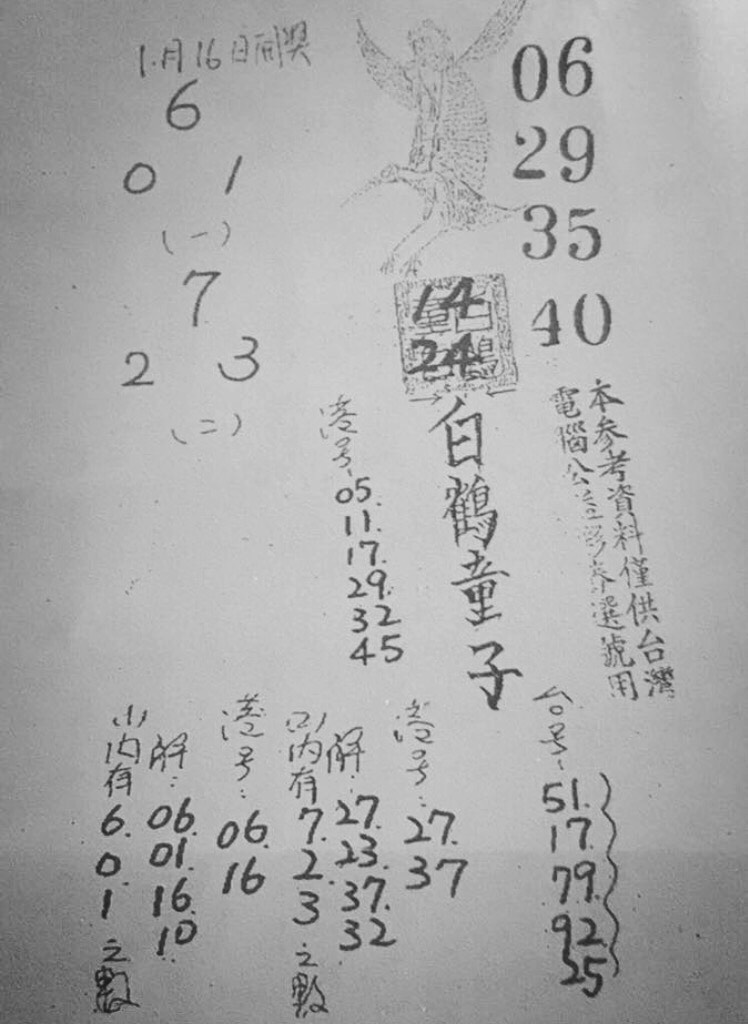 1月16日同獎
6
0 1
(一)
7
2 3
(二)
06
29
35
40
14
24
白鶴童子
本參考資料僅供台灣
電腦公益彩券選號用
港号:
05.
11.
17.
29.
32
45
(一)內有
6.
0.
1
之數
解:
06.
01.
16.
10
港号:
06.
16
(二)內有
7.
2.
3
之數
解:
27.
23.
37.
32
港号:
27.
37
台号:
51.
17.
79.
92.
25